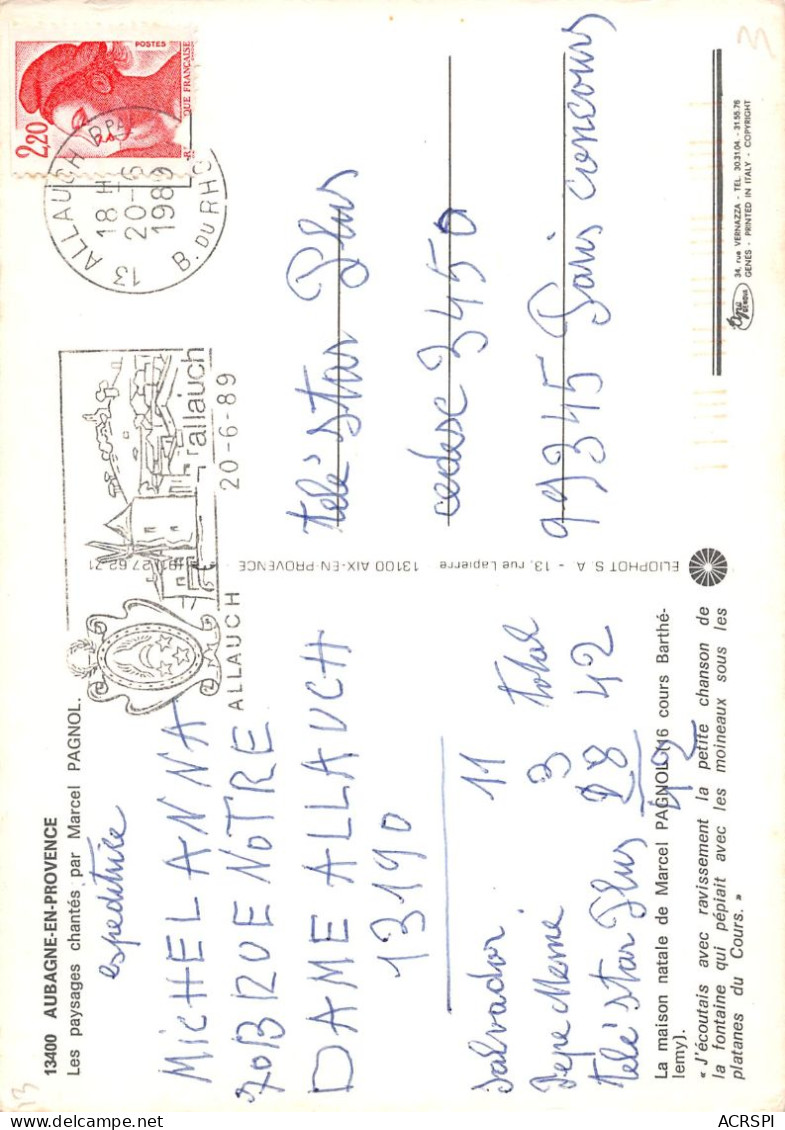 13400 AUBAGNE-EN-PROVENCE
Les paysages chantés par Marcel PAGNOL.
espeditrice
MICHEL ANNA
70B RUE NOTRE
DAME ALLAUCH
13190
Salvador 11
Pepe Memé 3 total
Telé star Plus 28 42
42
La maison natale de Marcel PAGNOL (16 cours Barthé-
lemy).
« J'écoutais avec ravissement la petite chanson de
la fontaine qui pépiait avec les moineaux sous les
platanes du Cours. »
ELIOPHOT S.A - 13, rue Lapierre - 13100 AIX-EN-PROVENCE - 27.62.71
2,20
POSTES
QUE FRANÇAISE
13 ALLAUCH
18 H
20-6
1989
B. DU RHO
allauch
ALLAUCH 20-6-89
Telé star Plus
cedese 3450
99345 Paris concours
34, rue VERNAZZA - TEL. 30.31.04 - 31.55.76
GENES - PRINTED IN ITALY - COPYRIGHT
13
3
ACRSPI